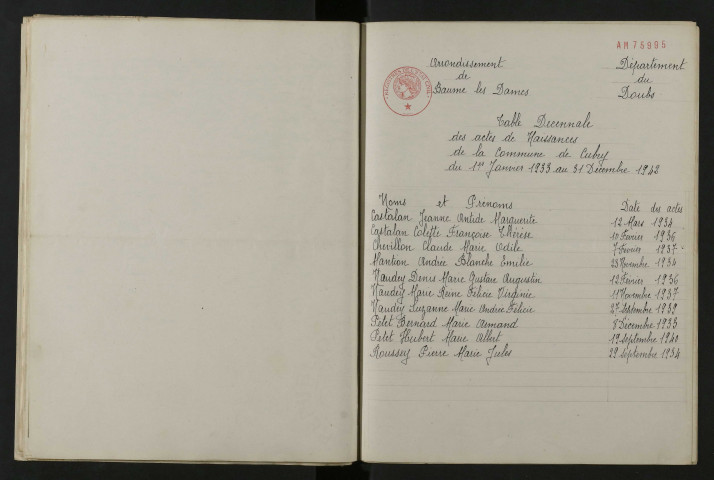 AM 75995
Arrondissement
de
Baume les Dames
Département
du
Doubs
Table Decennale
des actes de Naissances
de la Commune de Cubry
du 1er Janvier 1933 au 31 Décembre 1942
Noms et Prenoms Date des actes
Castalan Jeanne Antide Marguerite 12 Mars 1934
Castalan Colette Françoise Thérèse 10 Fevrier 1936
Chevillon Claude Marie Odile 7 Fevrier 1937
Mantion Andrée Blanche Emilie 23 Novembre 1934
Naudey Denis Marie Gustave Augustin 12 Fevrier 1936
Naudey Marie Reine Félicie Virginie 11 Novembre 1937
Naudey Suzanne Marie Andrée Félicie 27 Septembre 1939
Petet Bernard Marie Armand 8 Décembre 1933
Petet Hubert Marie Albert 19 Septembre 1940
Roussey Pierre Marie Jules 29 Septembre 1934